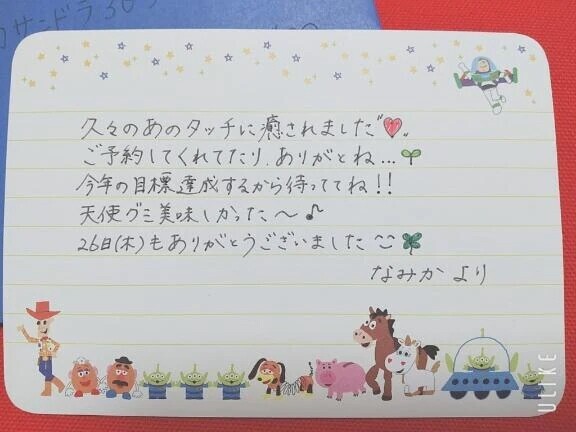 カサンドラ30
久々のあのタッチに癒されました"❤"
ご予約してくれてたり、ありがとね…🌱
今年の目標達成するから待っててね!!
天使グミ美味しかった〜♪
26日(木)もありがとうございました🍀
なみかより
ULIKE